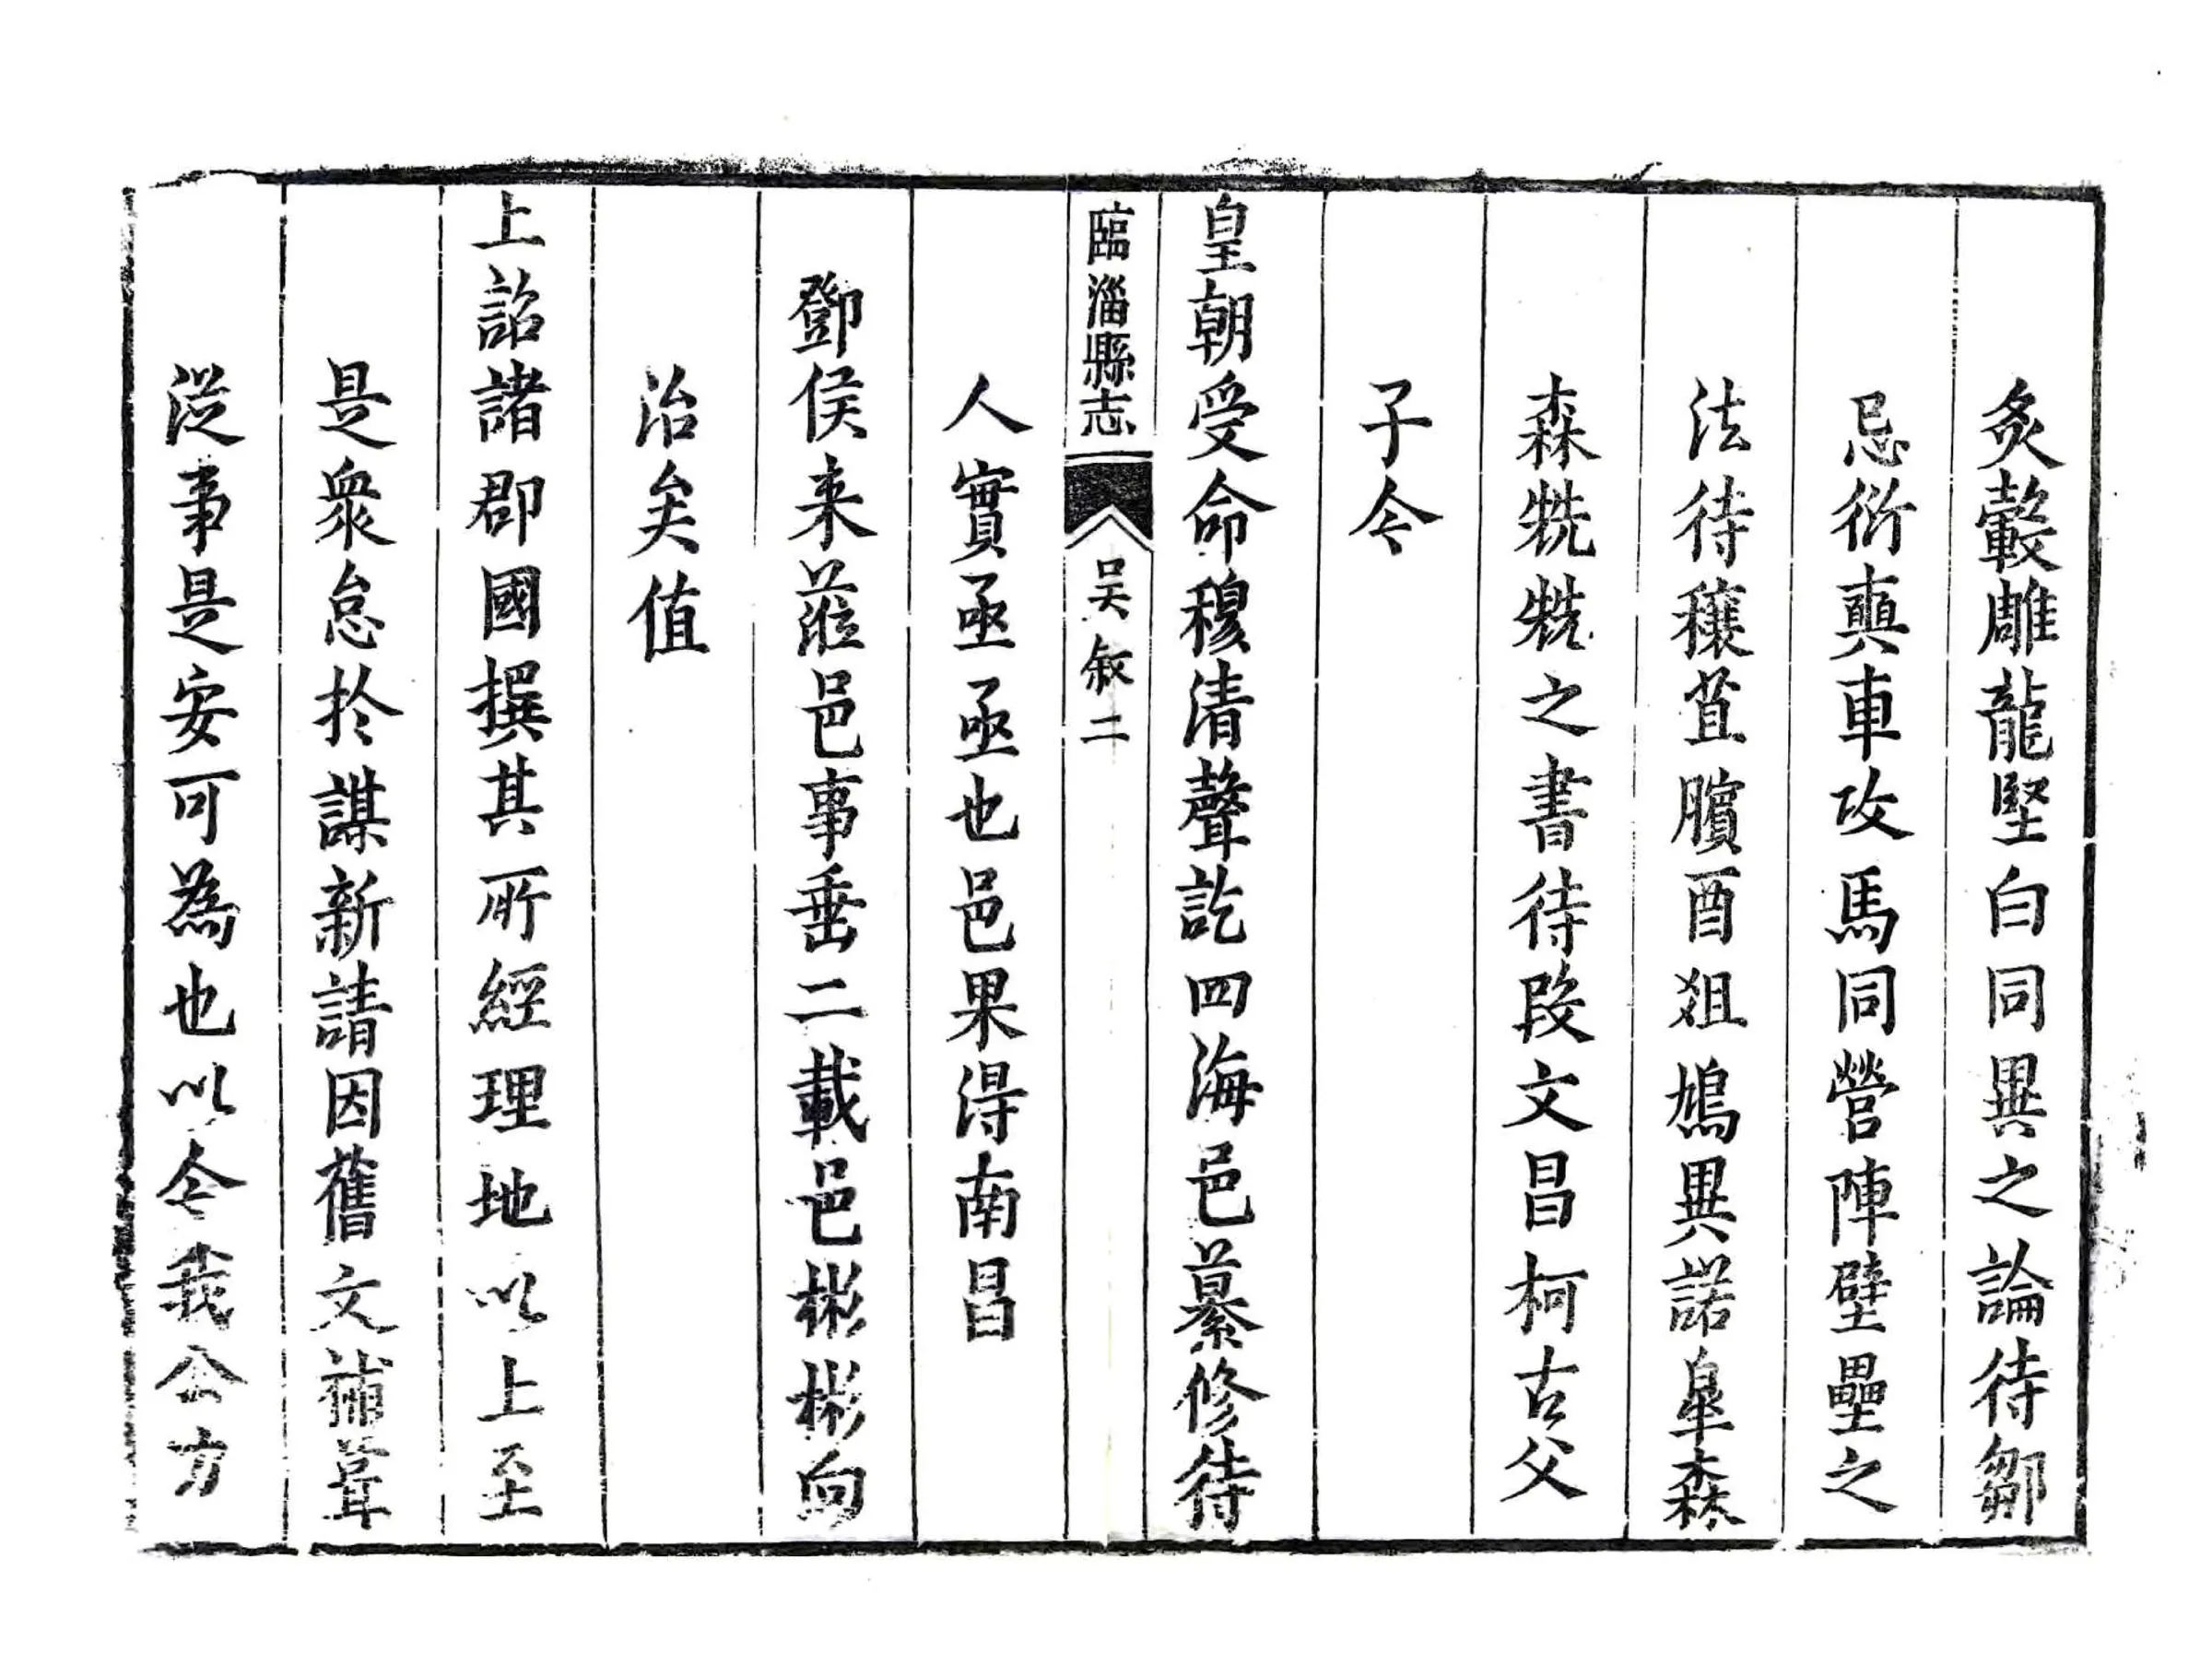 炙轂雕龍堅白同異之論待鄒
忌衍奭車攻馬同營陣壁壘之
法待穰苴臏酉爼鳩異諾臯森
森兟兟之書待段文昌柯古父
子今
皇朝受命穆清聲訖四海邑纂修待
臨淄縣志
吴叙二
人實亟亟也邑果淂南昌
鄧侯来蒞邑事垂二載邑彬彬向
治矣值
上詔諸郡國撰其所經理地以上至
是衆怠扵謀新請因舊文補葺
從事是安可為也以令我公方